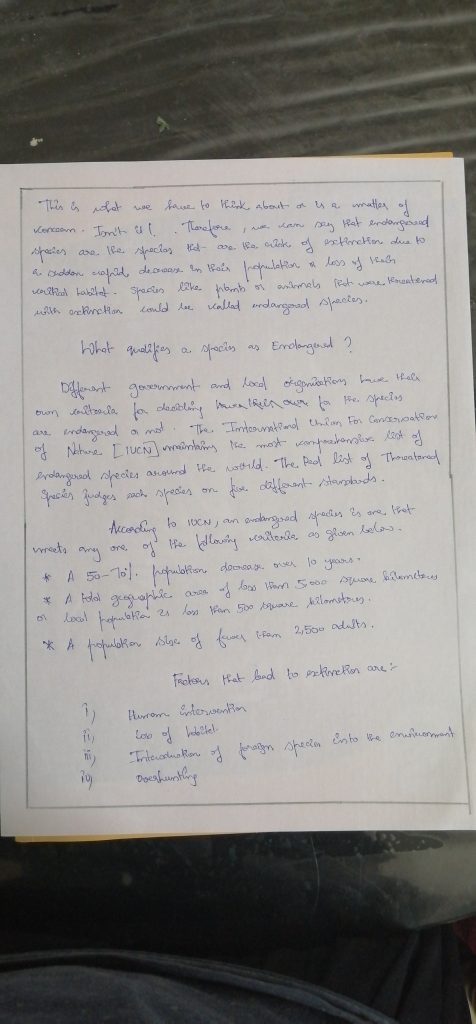 This is what we have to think about or is a matter of
concern. Isn't it! . Therefore, we can say that endangered
species are the species that are the risk of extinction due to
a sudden rapid decrease in their population or loss of their
critical habitat. Species like plants or animals that were threatened
with extinction could be called endangered species.
What qualifies a species as Endangered ?
Different government and local organisations have their
own criteria for deciding for the species
are endangered or not. The International Union For Conservation
of Nature [IUCN] maintains the most comprehensive list of
endangered species around the world. The Red list of Threatened
Species judges each species on five different standards.
According to IUCN, an endangered species is one that
meets any one of the following criteria as given below.
* A 50-70% population decrease over 10 years.
* A total geographic area of less than 5,000 square kilometres
or local population is less than 500 square kilometres.
* A population size of fewer than 2,500 adults.
Factors that lead to extinction are :-
i) Human intervention
ii) Loss of habitat
iii) Introduction of foreign species into the environment
iv) Overhunting